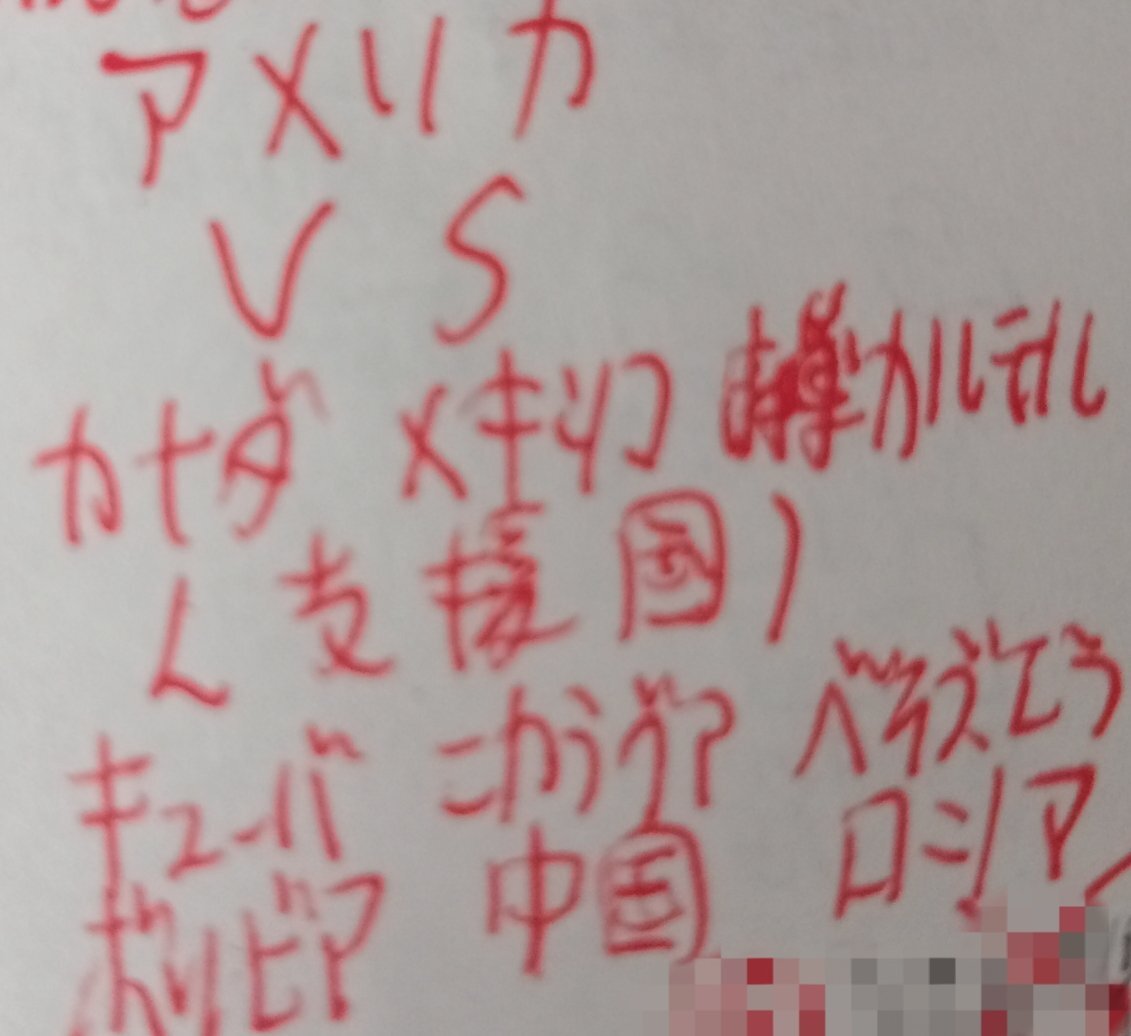 アメリカ
VS
カナダ メキシコ カルテル
(支援国)
キューバ ニカラグア ベネズエラ
ボリビア 中国 ロシア